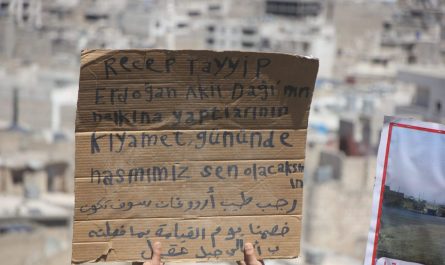 Recep Tayyip
Erdoğan Akıl Dağı'nın
halkına yaptlarının
Kıyamet gününde
hasmımız sen olacaksın
رجب طيب أردوغان سوف تكون
خصمنا يوم القيامة بما فعلته
جبل عقيل